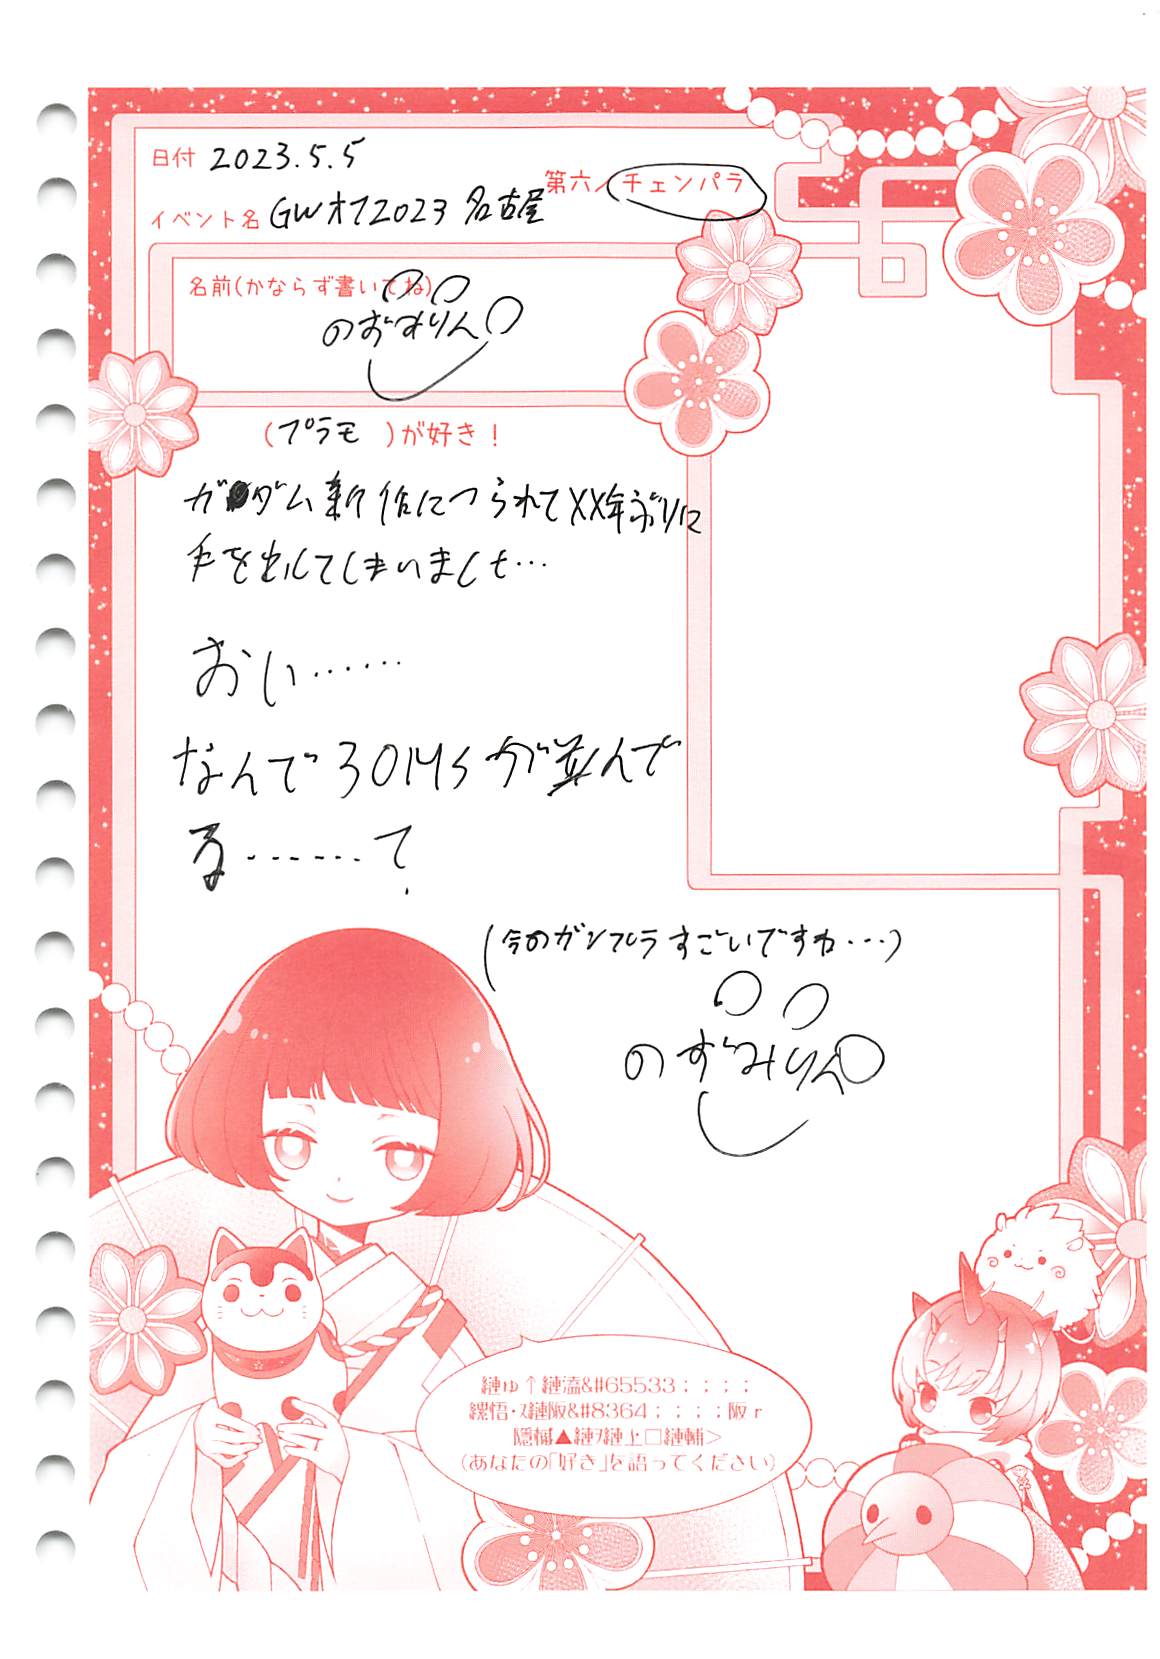 日付 2023.5.5
第六/チェンパラ
イベント名 GWオフ2023 名古屋
名前(かならず書いてね)
のずみりん
(プラモ )が好き!
ガンダム新作につられてXX年ぶりに
手を出してしまいました…
おい……
なんで30MSが並んで
る……て?
(今のガンプラすごいですね...)
のずみりん
縺ゅ↑縺滀&#65533;;;;
縲悟・ス縺阪&#8364;;;;阪r
隠槭▲縺ヲ縺上□縺輔>
(あなたの「好き」を語ってください)